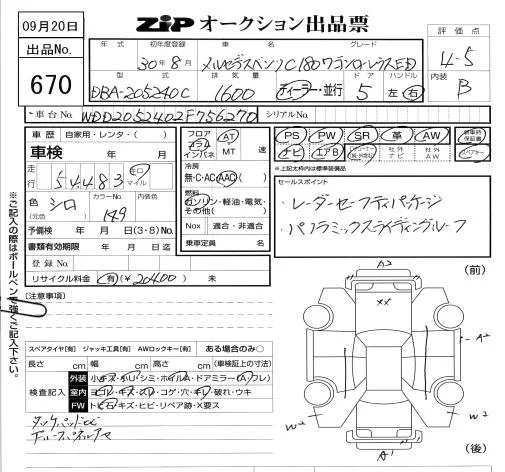 09月20日
ZiP オークション出品票
出品No.
670
年式 初年度登録 車名 グレード
30年8月 メルセデスベンツC180ワゴンローレウスED
型式 排気量 ドア ハンドル
DBA-205240C 1600 ディーラー・並行 5 左 右
評価点
4-5
内装
B
車台No. WDD2052402F756270 シリアルNo.
車歴 自家用・レンタ・( )
車検 年 月
走行 54483 キロ マイル
色 シロ カラーNo. 149 内装色
(元色)
予備検 年 月 日 (3・8) No.
書類有効期限 年 月 日迄
登録No.
リサイクル料金 有(¥ 20400 ) 未
フロア コラム インパネ AT MT 速
冷房
無・C・AC・AAC( )
燃料
ガソリン・軽油・電気・その他( )
Nox 適合・非適合
乗車定員 名
PS PW SR 革 AW 新車時保証書
ナビ エアB 社外ナビ 社外AW
※上記太枠内は標準装備品
セールスポイント
・レーダーセーフティパッケージ
・パノラミックスライディングルーフ
※ご記入の際はボールペンで強くご記入下さい。
[注意事項]
スペアタイヤ[有] ジャッキ工具[有] AWロックキー[有] ある場合のみ○
長さ cm 幅 cm 高さ cm (車検証上の寸法)
検査記入 外装 小キズ・小U・シミ・ホイルA・ドアミラー(A・フレ)
室内 ヨゴレ・キズ・スレ・コゲ・穴・キレ・破れ・ウキ
FW トビ石・キズ・ヒビ・リペア跡・X要ス
(前)
A2
XX
A2
W2
W2
A1
(後)